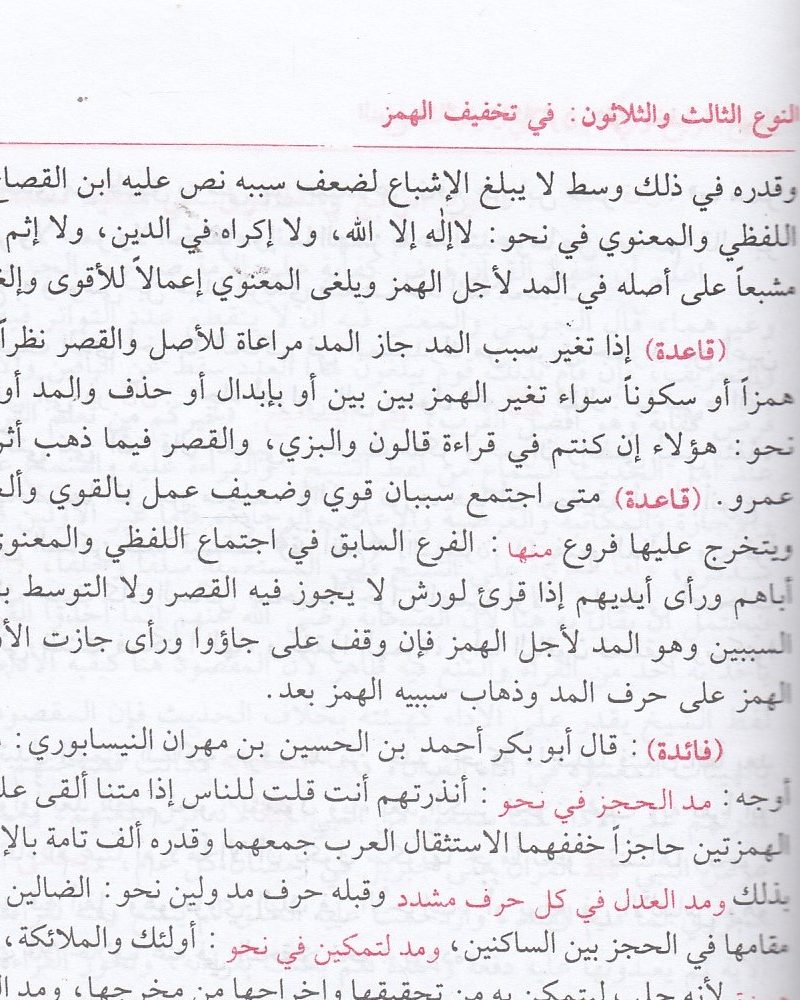 النوع الثالث والثلاثون: في تخفيف الهمز
وقدره في ذلك وسط لا يبلغ الإشباع لضعف سببه نص عليه ابن القصا
اللفظي والمعنوي في نحو: لاإلٰه إلا الله، ولا إكراه في الدين، ولا إثم
مشبعاً على أصله في المد لأجل الهمز ويلغى المعنوي إعمالاً للأقوى وإلغ
(قاعدة) إذا تغير سبب المد جاز المد مراعاة للأصل والقصر نظراً
همزاً أو سكوناً سواء تغير الهمز بين بين أو بإبدال أو حذف والمد أو
نحو: هؤلاء إن كنتم في قراءة قالون والبزي، والقصر فيما ذهب أثر
عمرو. (قاعدة) متى اجتمع سببان قوي وضعيف عمل بالقوي وألغ
ويتخرج عليها فروع منها: الفرع السابق في اجتماع اللفظي والمعنوي
أباهم ورأى أيديهم إذا قرئ لورش لا يجوز فيه القصر ولا التوسط ب
السببين وهو المد لأجل الهمز فإن وقف على جاؤوا ورأى جازت الأ
الهمز على حرف المد وذهاب سببيه الهمز بعد.
(فائدة): قال أبو بكر أحمد بن الحسين بن مهران النيسابوري:
أوجه: مد الحجز في نحو: أنذرتهم أنت قلت للناس إذا متنا ألقى عل
الهمزتين حاجزاً خففهما الاستثقال العرب جمعهما وقدره ألف تامة بالإ
بذلك ومد العدل في كل حرف مشدد وقبله حرف مد ولين نحو: الضالين
مقامها في الحجز بين الساكنين، ومد لتمكين في نحو: أولئك والملائكة،
لأنه جلب ليتمكن به من تحقيقها وإخراجها من مخرجها، ومد